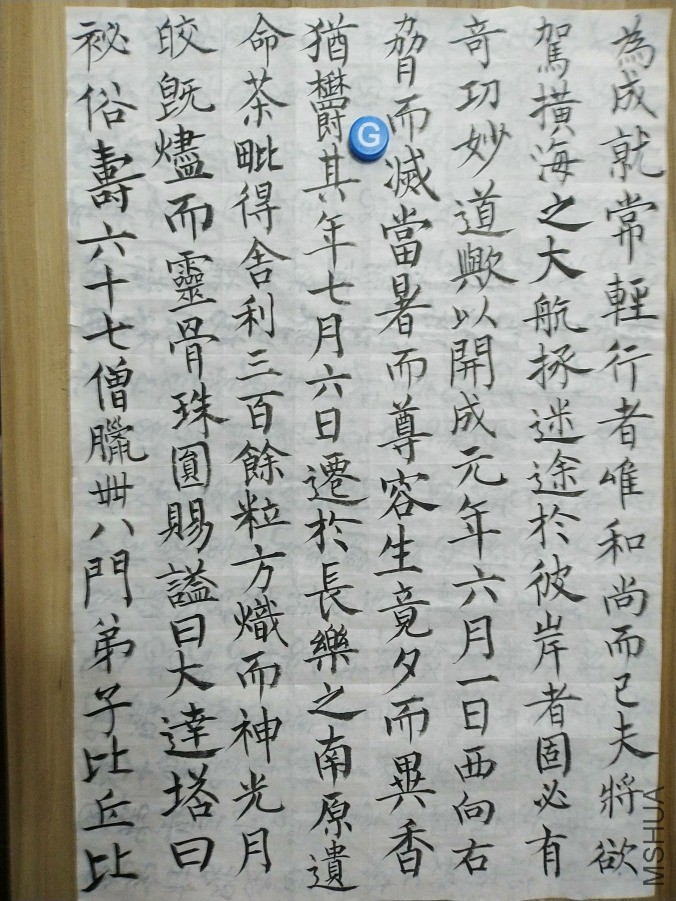 為成就常輕行者唯和尚而已夫將欲
駕橫海之大航拯迷途於彼岸者固必有
奇功妙道歟以開成元年六月一日西向右
脅而滅當暑而尊容生竟夕而異香
猶欝其年七月六日遷於長樂之南原遺
命荼毗得舍利三百餘粒方熾而神光月
皎既燼而靈骨珠圓賜謚曰大達塔曰
祕俗壽六十七僧臘卌八門弟子比丘比
G
MSHUA